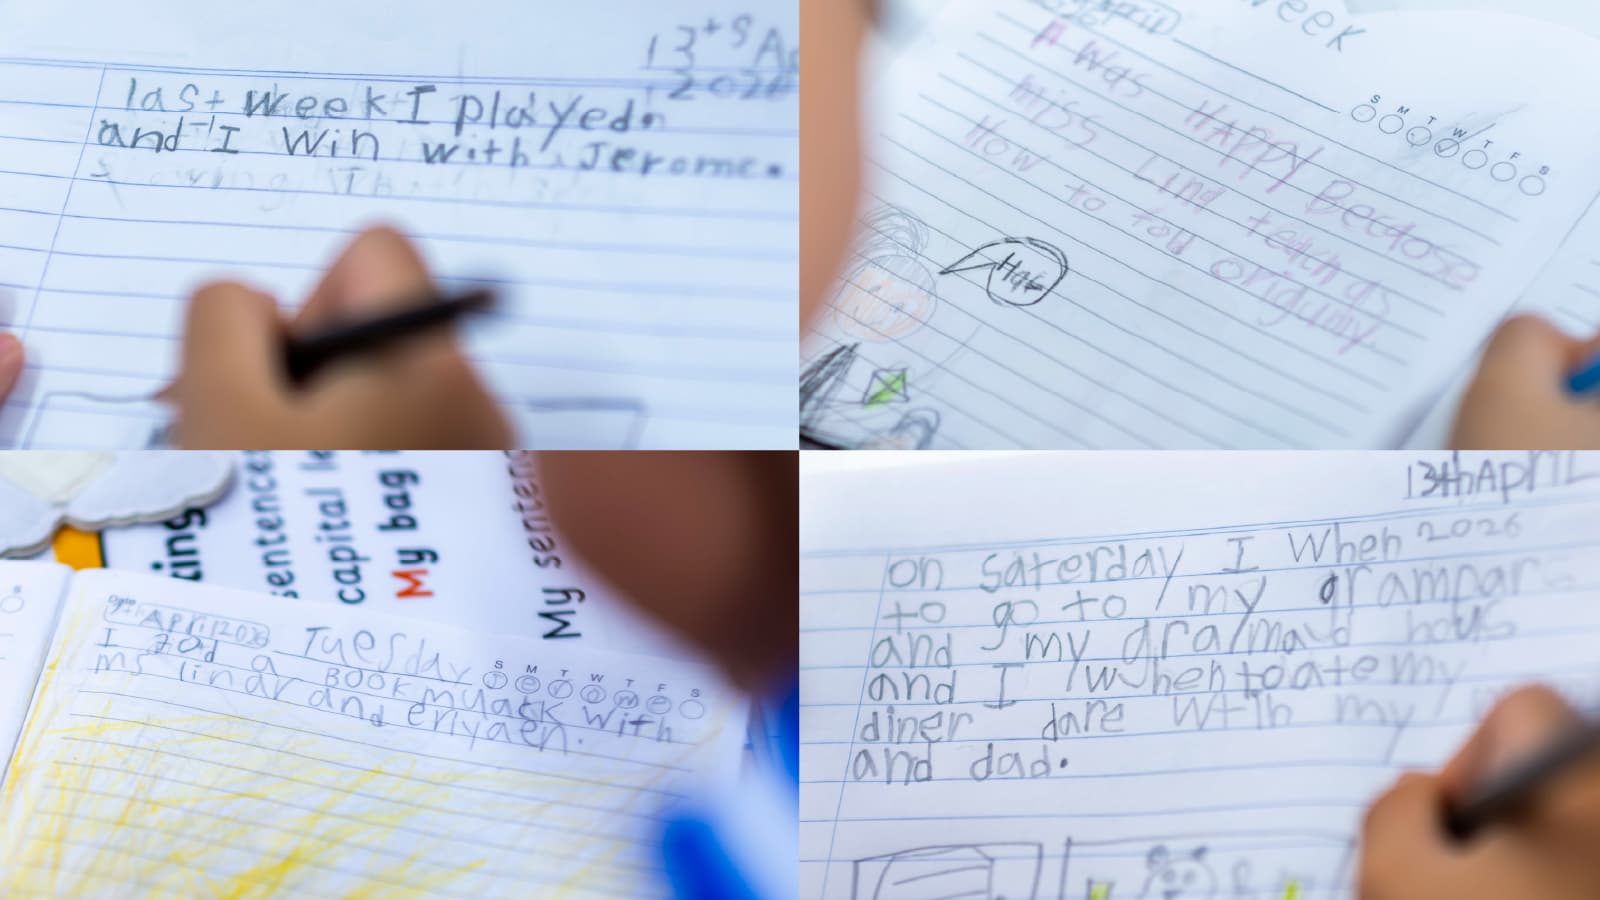 13+s Ap
2026
last week I played.
and I win with Jerome.
week
April
I was HAPPY Becose
Miss Lina teach as
How to fold origumy.
S M T W T F S
Ha
sentence
capital le
My bag
My sentenc
king
9th April 2026 Tuesday
I fold a BOOKmuark with
ms linar and eriyaen.
S M T W T F S
13th April
2026
on Saterday I When
to go to my grampar
and my gra/maud hous
and I when to ate my
diner dare with my
and dad.